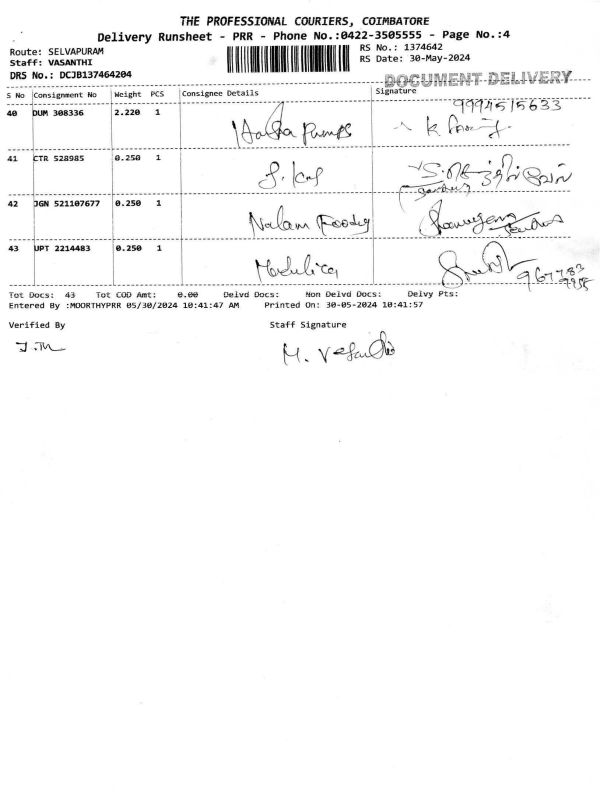 THE PROFESSIONAL COURIERS, COIMBATORE
Delivery Runsheet - PRR - Phone No.:0422-3505555 - Page No.:4
Route: SELVAPURAM
Staff: VASANTHI
DRS No.: DCJB137464204
RS No.: 1374642
RS Date: 30-May-2024
DOCUMENT DELIVERY
S No Consignment No Weight PCS Consignee Details Signature
40 DUM 308336 2.220 1 Pumps 9994515633
41 CTR 528985 0.250 1
42 JGN 521107677 0.250 1 Nalam Foods
43 UPT 2214483 0.250 1
Tot Docs: 43 Tot COD Amt: 0.00 Delvd Docs: Non Delvd Docs: Delvy Pts:
Entered By :MOORTHYPRR 05/30/2024 10:41:47 AM Printed On: 30-05-2024 10:41:57
Verified By Staff Signature